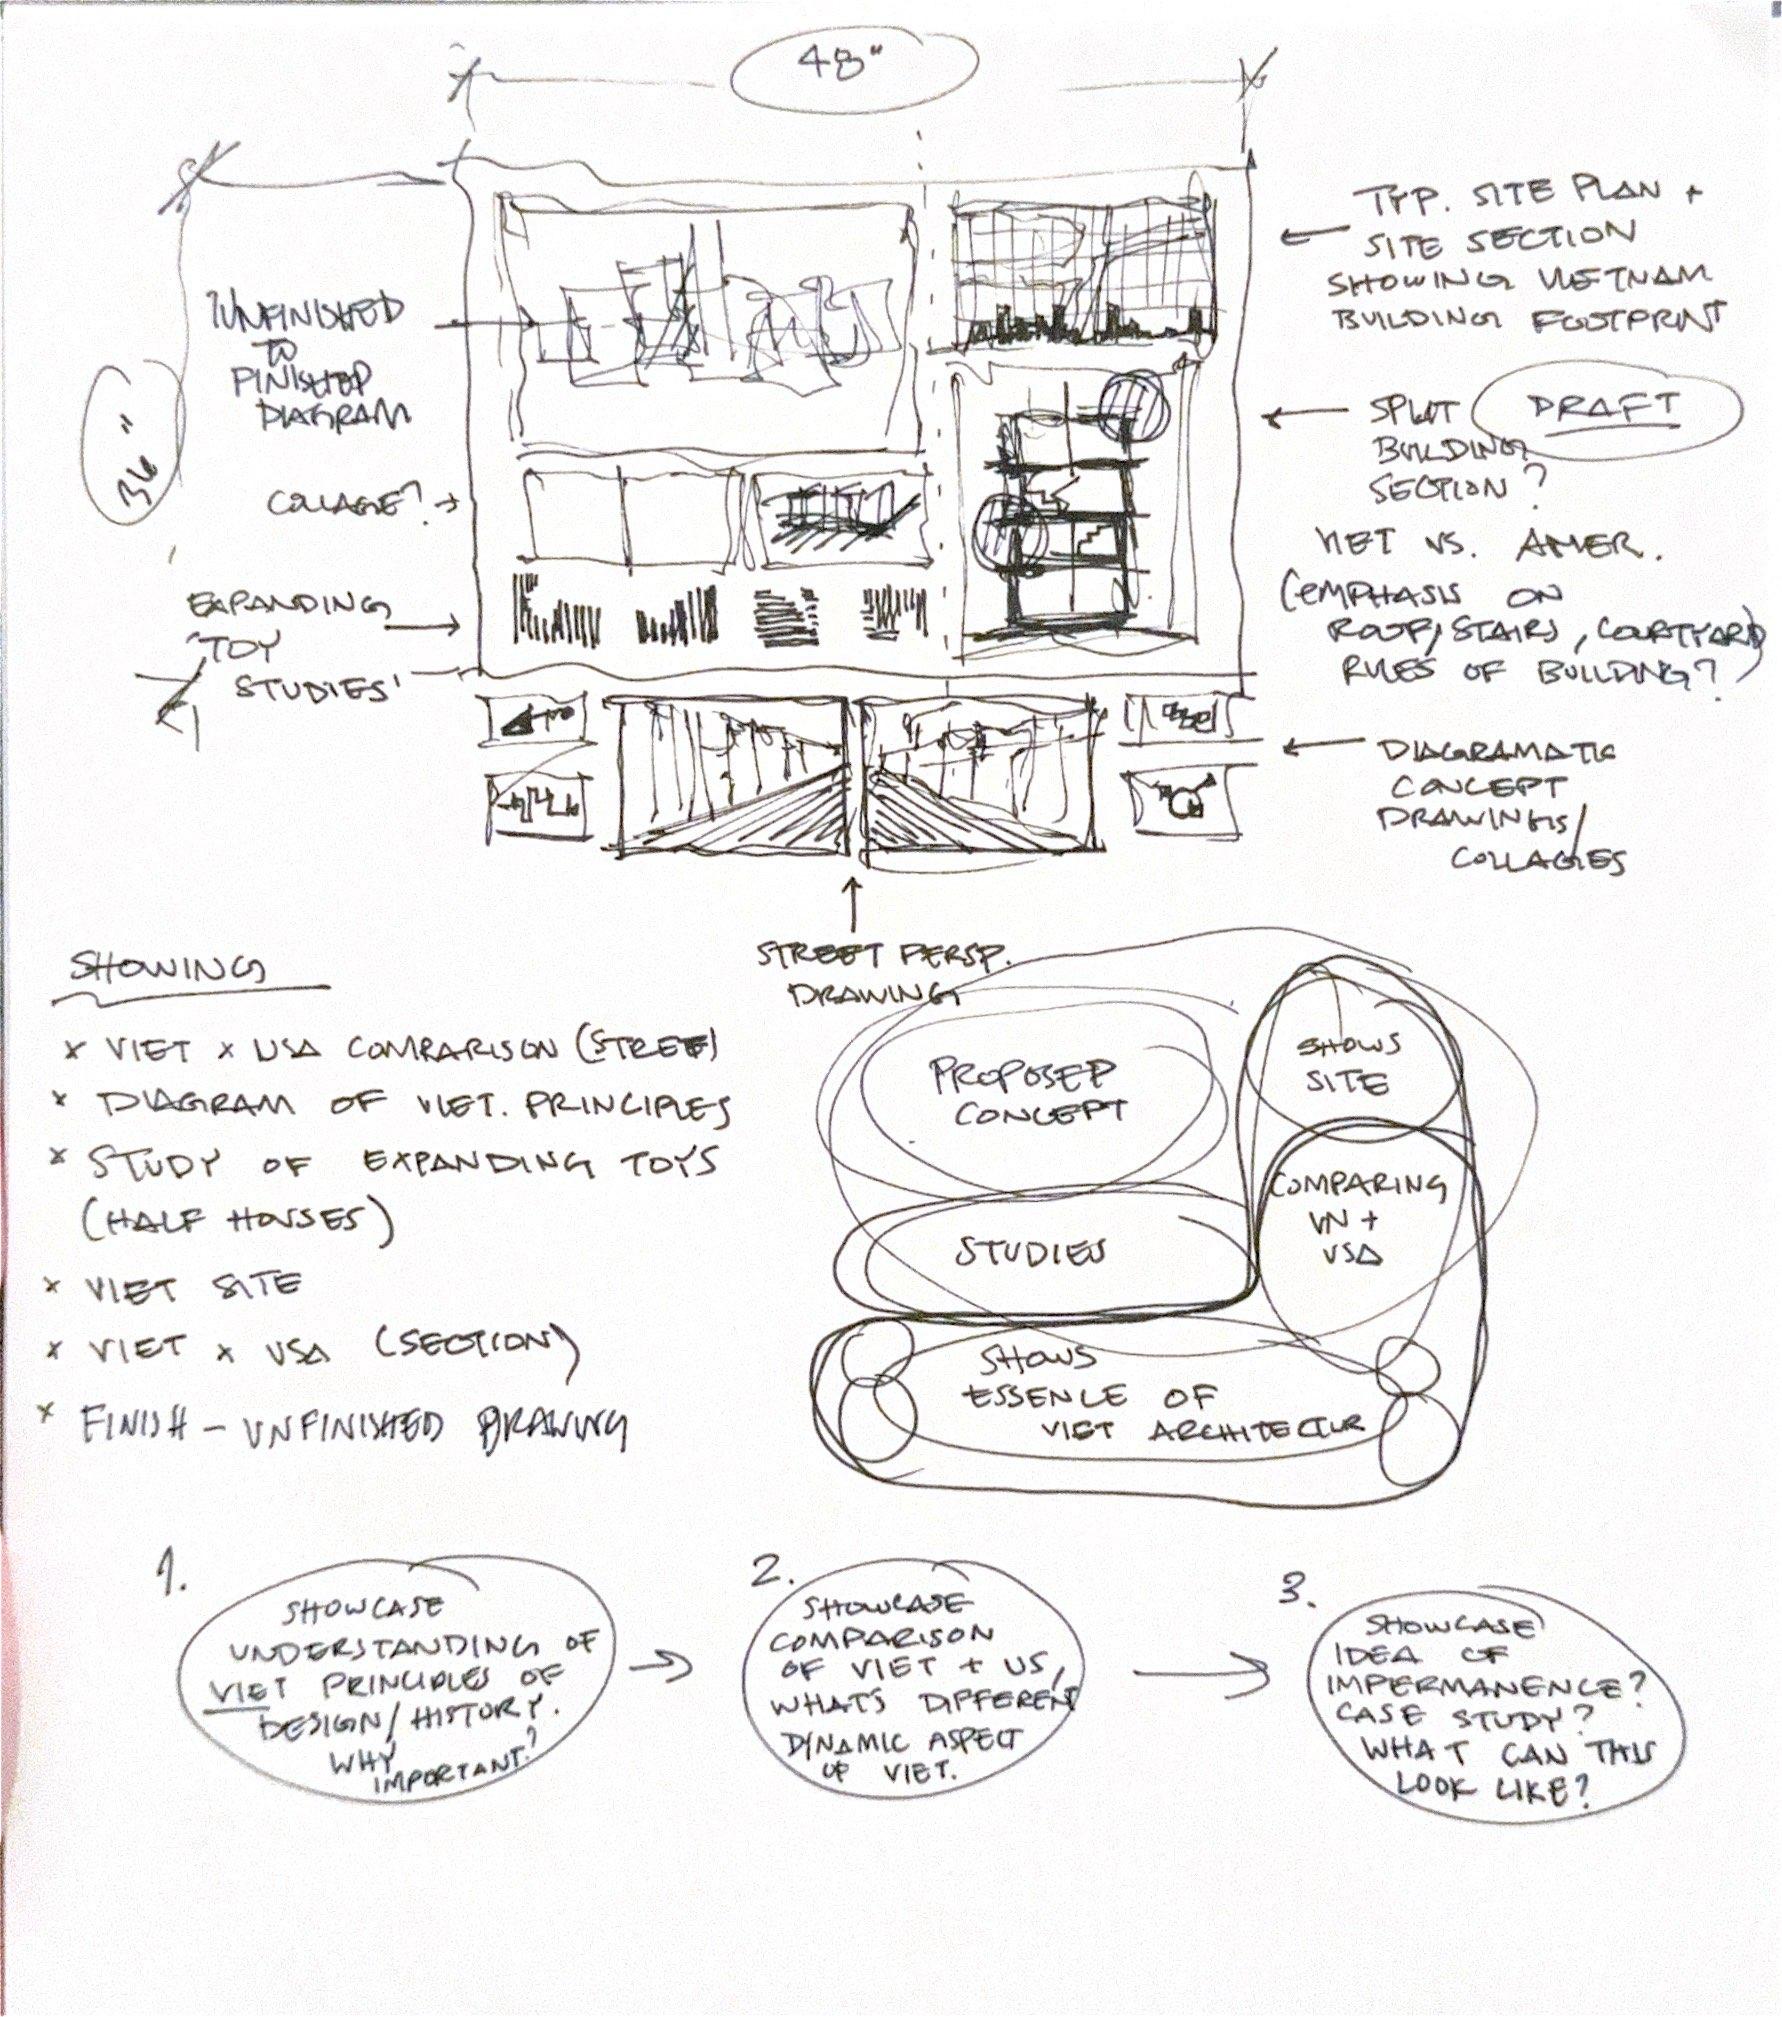 48"
36"
UNFINISHED
TO
FINISHED
DIAGRAM
COLLAGE?
EXPANDING
'TOY
STUDIES'
TYP. SITE PLAN +
SITE SECTION
SHOWING VIETNAM
BUILDING FOOTPRINT
SPLIT
BUILDING
SECTION?
DRAFT
VIET VS. AMER.
(EMPHASIS ON
ROOF/STAIRS, COURTYARD)
RULES OF BUILDING?)
DIAGRAMATIC
CONCEPT
DRAWINGS/
COLLAGES
STREET PERSP.
DRAWING
SHOWING
x VIET x USA COMPARISON (STREET)
x DIAGRAM OF VIET. PRINCIPLES
x STUDY OF EXPANDING TOYS
(HALF HOUSES)
x VIET SITE
x VIET x USA (SECTION)
x FINISH - UNFINISHED DRAWING
PROPOSED
CONCEPT
SHOWS
SITE
STUDIES
COMPARING
VN +
USA
SHOWS
ESSENCE OF
VIET ARCHITECTUR
1.
SHOWCASE
UNDERSTANDING OF
VIET PRINCIPLES OF
DESIGN/HISTORY.
WHY
IMPORTANT?
2.
SHOWCASE
COMPARISON
OF VIET + US,
WHAT'S DIFFERENT
DYNAMIC ASPECT
OF VIET.
3.
SHOWCASE
IDEA OF
IMPERMANENCE?
CASE STUDY?
WHAT CAN THIS
LOOK LIKE?